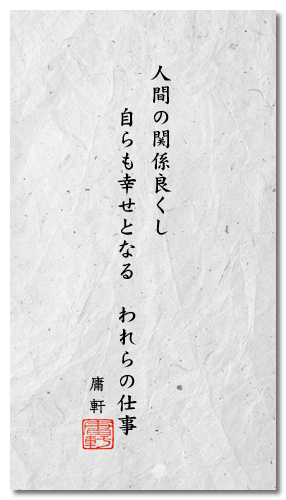 人間の関係良くし
自らも幸せとなる　われらの仕事
庸軒